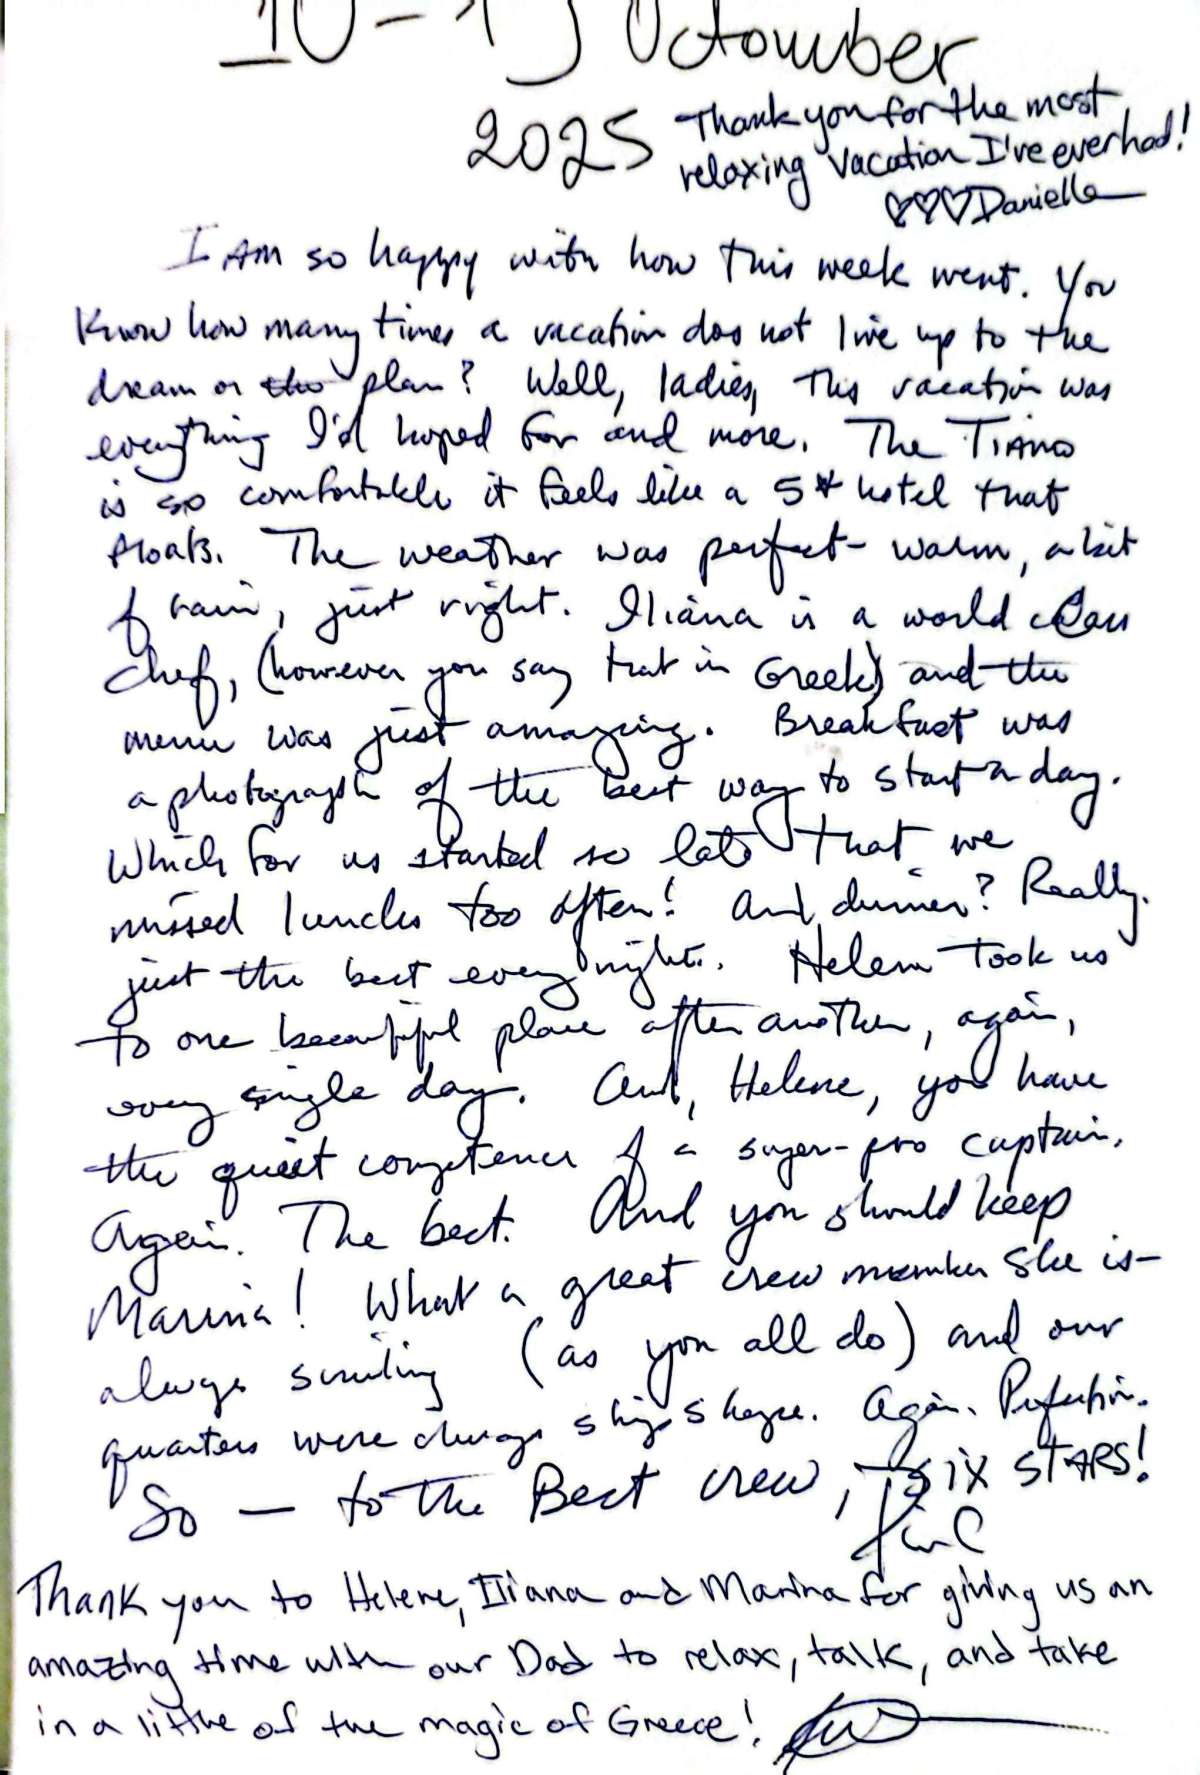 October
2025
Thank you for the most
relaxing vacation I've ever had!
♡♡♡ Danielle
I AM so happy with how this week went. You
know how many times a vacation does not live up to the
dream or the plan? Well, ladies, this vacation was
everything I'd hoped for and more. The
is so comfortable it feels like a 5* hotel that
floats. The weather was perfect - warm, a bit
of rain, just right. Iliana is a world class
chef, (however you say that in Greek) and the
menu was just amazing. Breakfast was
a photograph of the best way to start a day.
Which for us started so late that we
missed lunches too often! And dinner? Really.
just the best every night. Helene took us
to one beautiful place after another, again,
every single day. And, Helene, you have
the quiet competence of a super-pro captain.
Again. The best. And you should keep
Marina! What a great crew member she is -
always smiling (as you all do) and our
quarters were always ship shape. Again. Perfection.
So — to the Best crew, SIX STARS!
Thank you to Helene, Iliana and Marina for giving us an
amazing time with our Dad to relax, talk, and take
in a little of the magic of Greece!